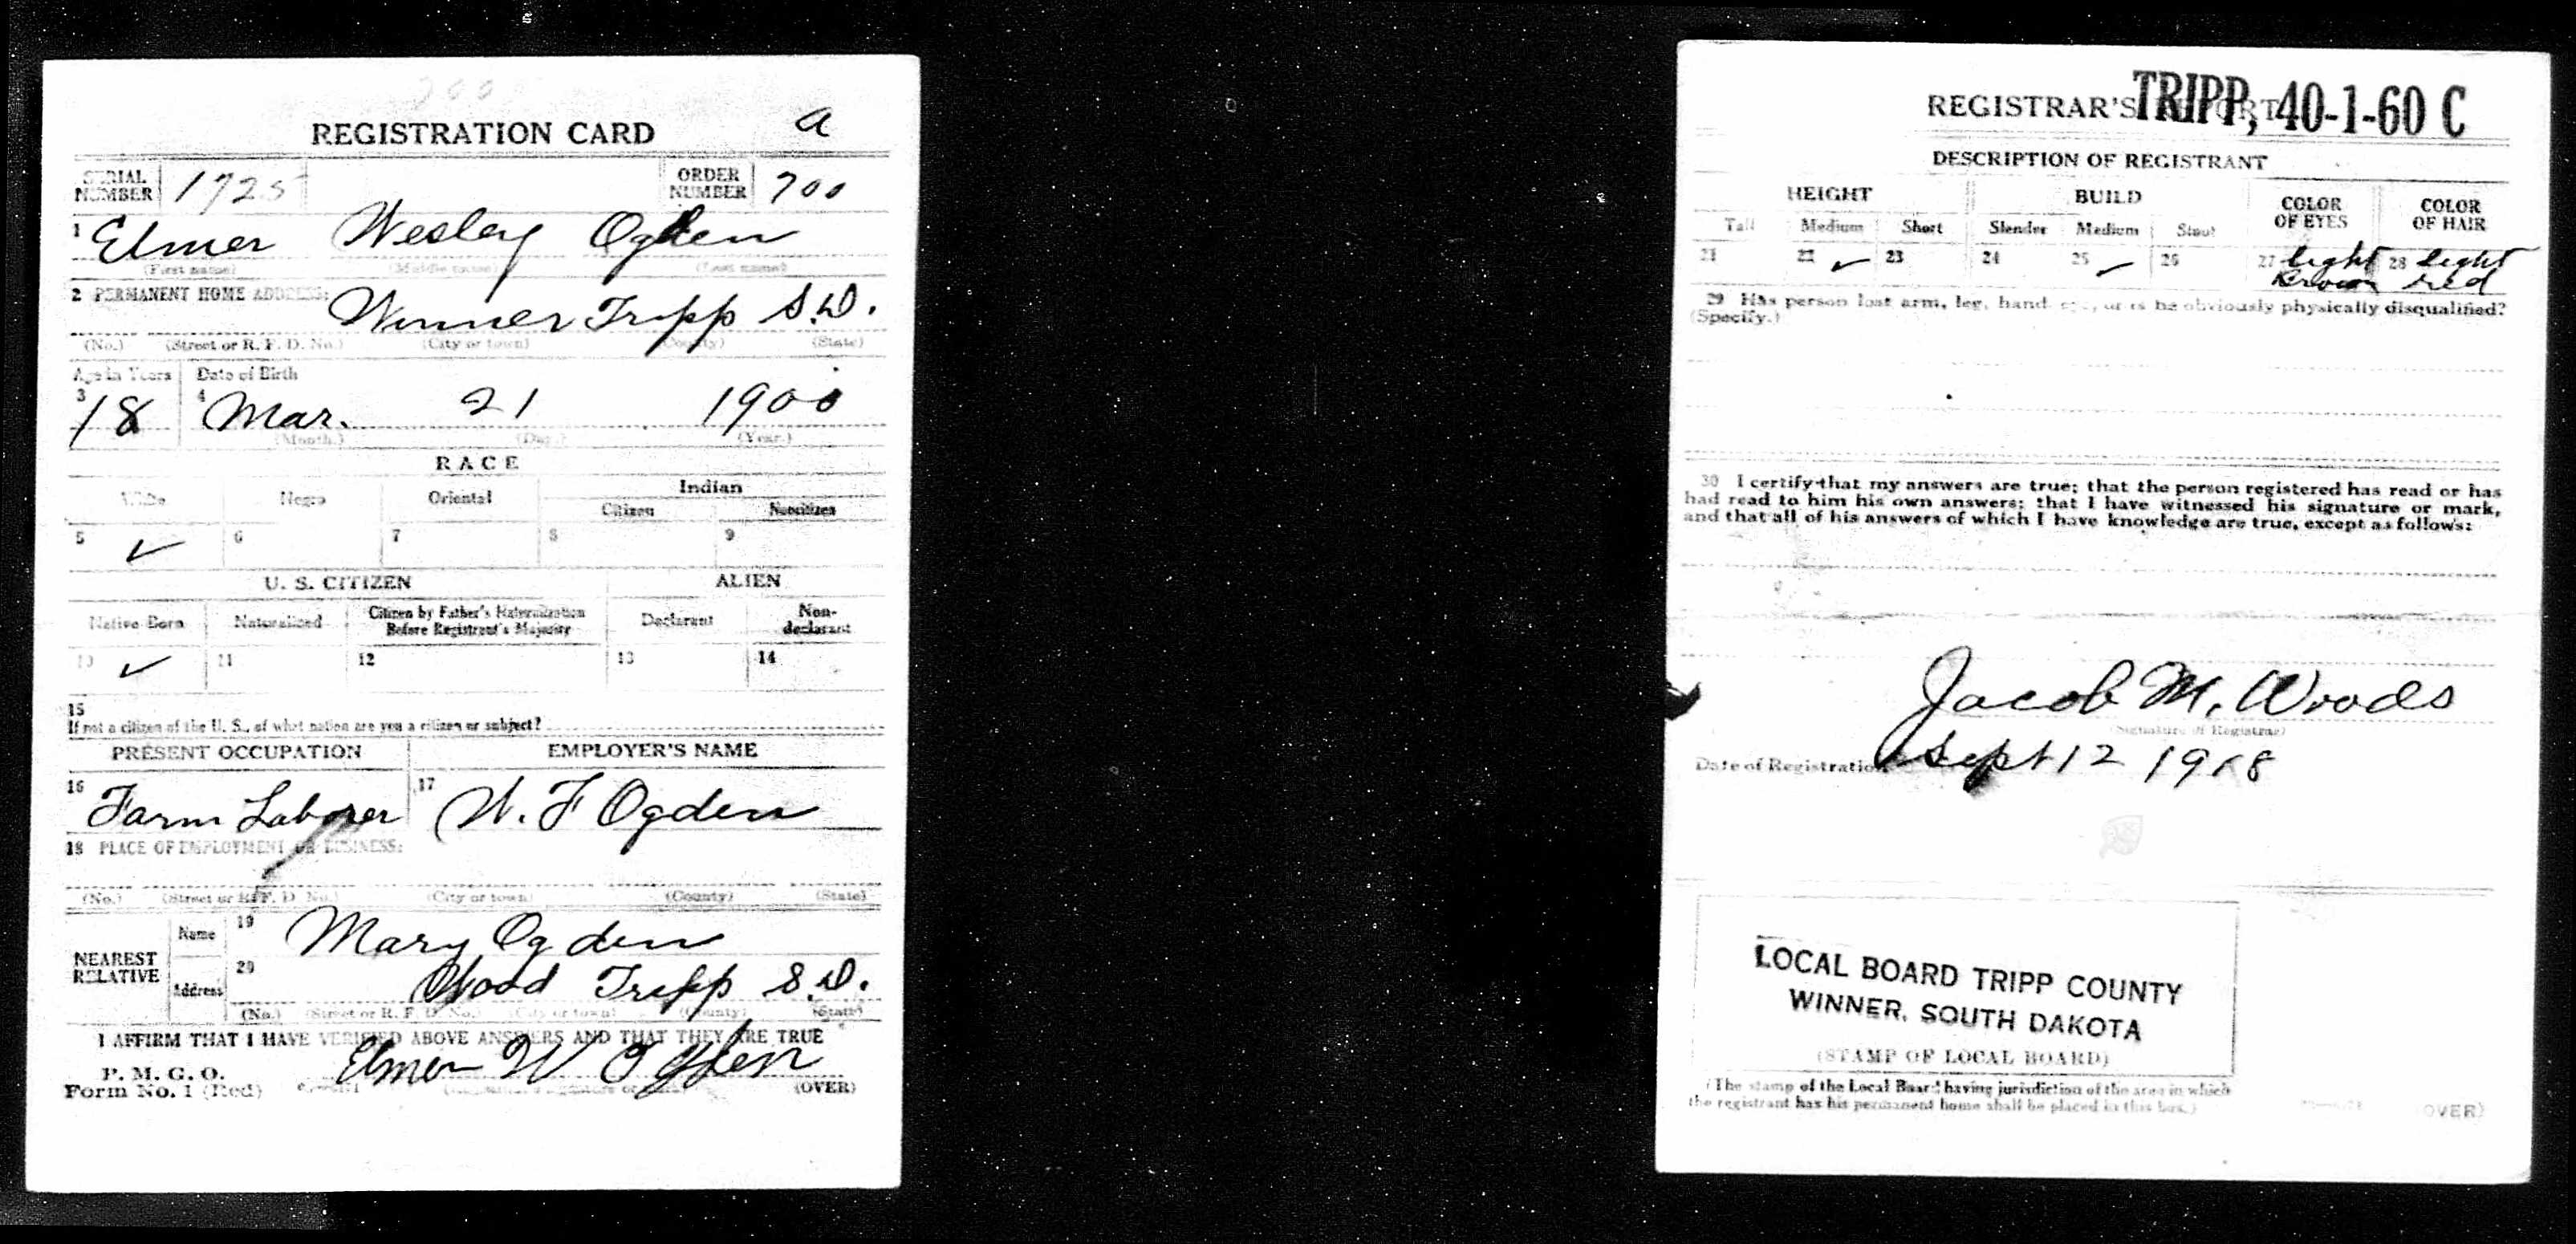 a
REGISTRATION CARD
SERIAL NUMBER 1725 ORDER NUMBER 700
1 Elmer Wesley Ogden
(First name) (Middle name) (Last name)
2 PERMANENT HOME ADDRESS:
Winner Tripp S.D.
(No.) (Street or R. F. D. No.) (City or town) (County) (State)
Age in Years Date of Birth
3 18 4 Mar. 21 1900
(Month.) (Day.) (Year.)
RACE
White Negro Oriental Indian
Citizen Noncitizen
5 ✓ 6 7 8 9
U. S. CITIZEN ALIEN
Native Born Naturalized Citizen by Father's Naturalization Before Registrant's Majority Declarant Non-declarant
10 ✓ 11 12 13 14
15
If not a citizen of the U. S., of what nation are you a citizen or subject?
PRESENT OCCUPATION EMPLOYER'S NAME
16 Farm Laborer 17 W. F Ogden
18 PLACE OF EMPLOYMENT OR BUSINESS:
(No.) (Street or R. F. D. No.) (City or town) (County) (State)
NEAREST RELATIVE Name 19 Mary Ogden
Address 20 Wood Tripp S.D.
(No.) (Street or R. F. D. No.) (City or town) (County) (State)
I AFFIRM THAT I HAVE VERIFIED ABOVE ANSWERS AND THAT THEY ARE TRUE
P. M. G. O.
Form No. 1 (Red) Elmer W Ogden (OVER)
REGISTRAR'S REPORT
TRIPP, 40-1-60 C
DESCRIPTION OF REGISTRANT
HEIGHT BUILD COLOR OF EYES COLOR OF HAIR
Tall Medium Short Slender Medium Stout
21 22 ✓ 23 24 25 ✓ 26 27 light Brown 28 light red
29 Has person lost arm, leg, hand, eye, or is he obviously physically disqualified?
(Specify.)
30 I certify that my answers are true; that the person registered has read or has
had read to him his own answers; that I have witnessed his signature or mark,
and that all of his answers of which I have knowledge are true, except as follows:
Jacob M. Woods
(Signature of Registrar)
Date of Registration Sept 12 1918
LOCAL BOARD TRIPP COUNTY
WINNER, SOUTH DAKOTA
(STAMP OF LOCAL BOARD)
(The stamp of the Local Board having jurisdiction of the area in which
the registrant has his permanent home shall be placed in this box.)
(OVER)